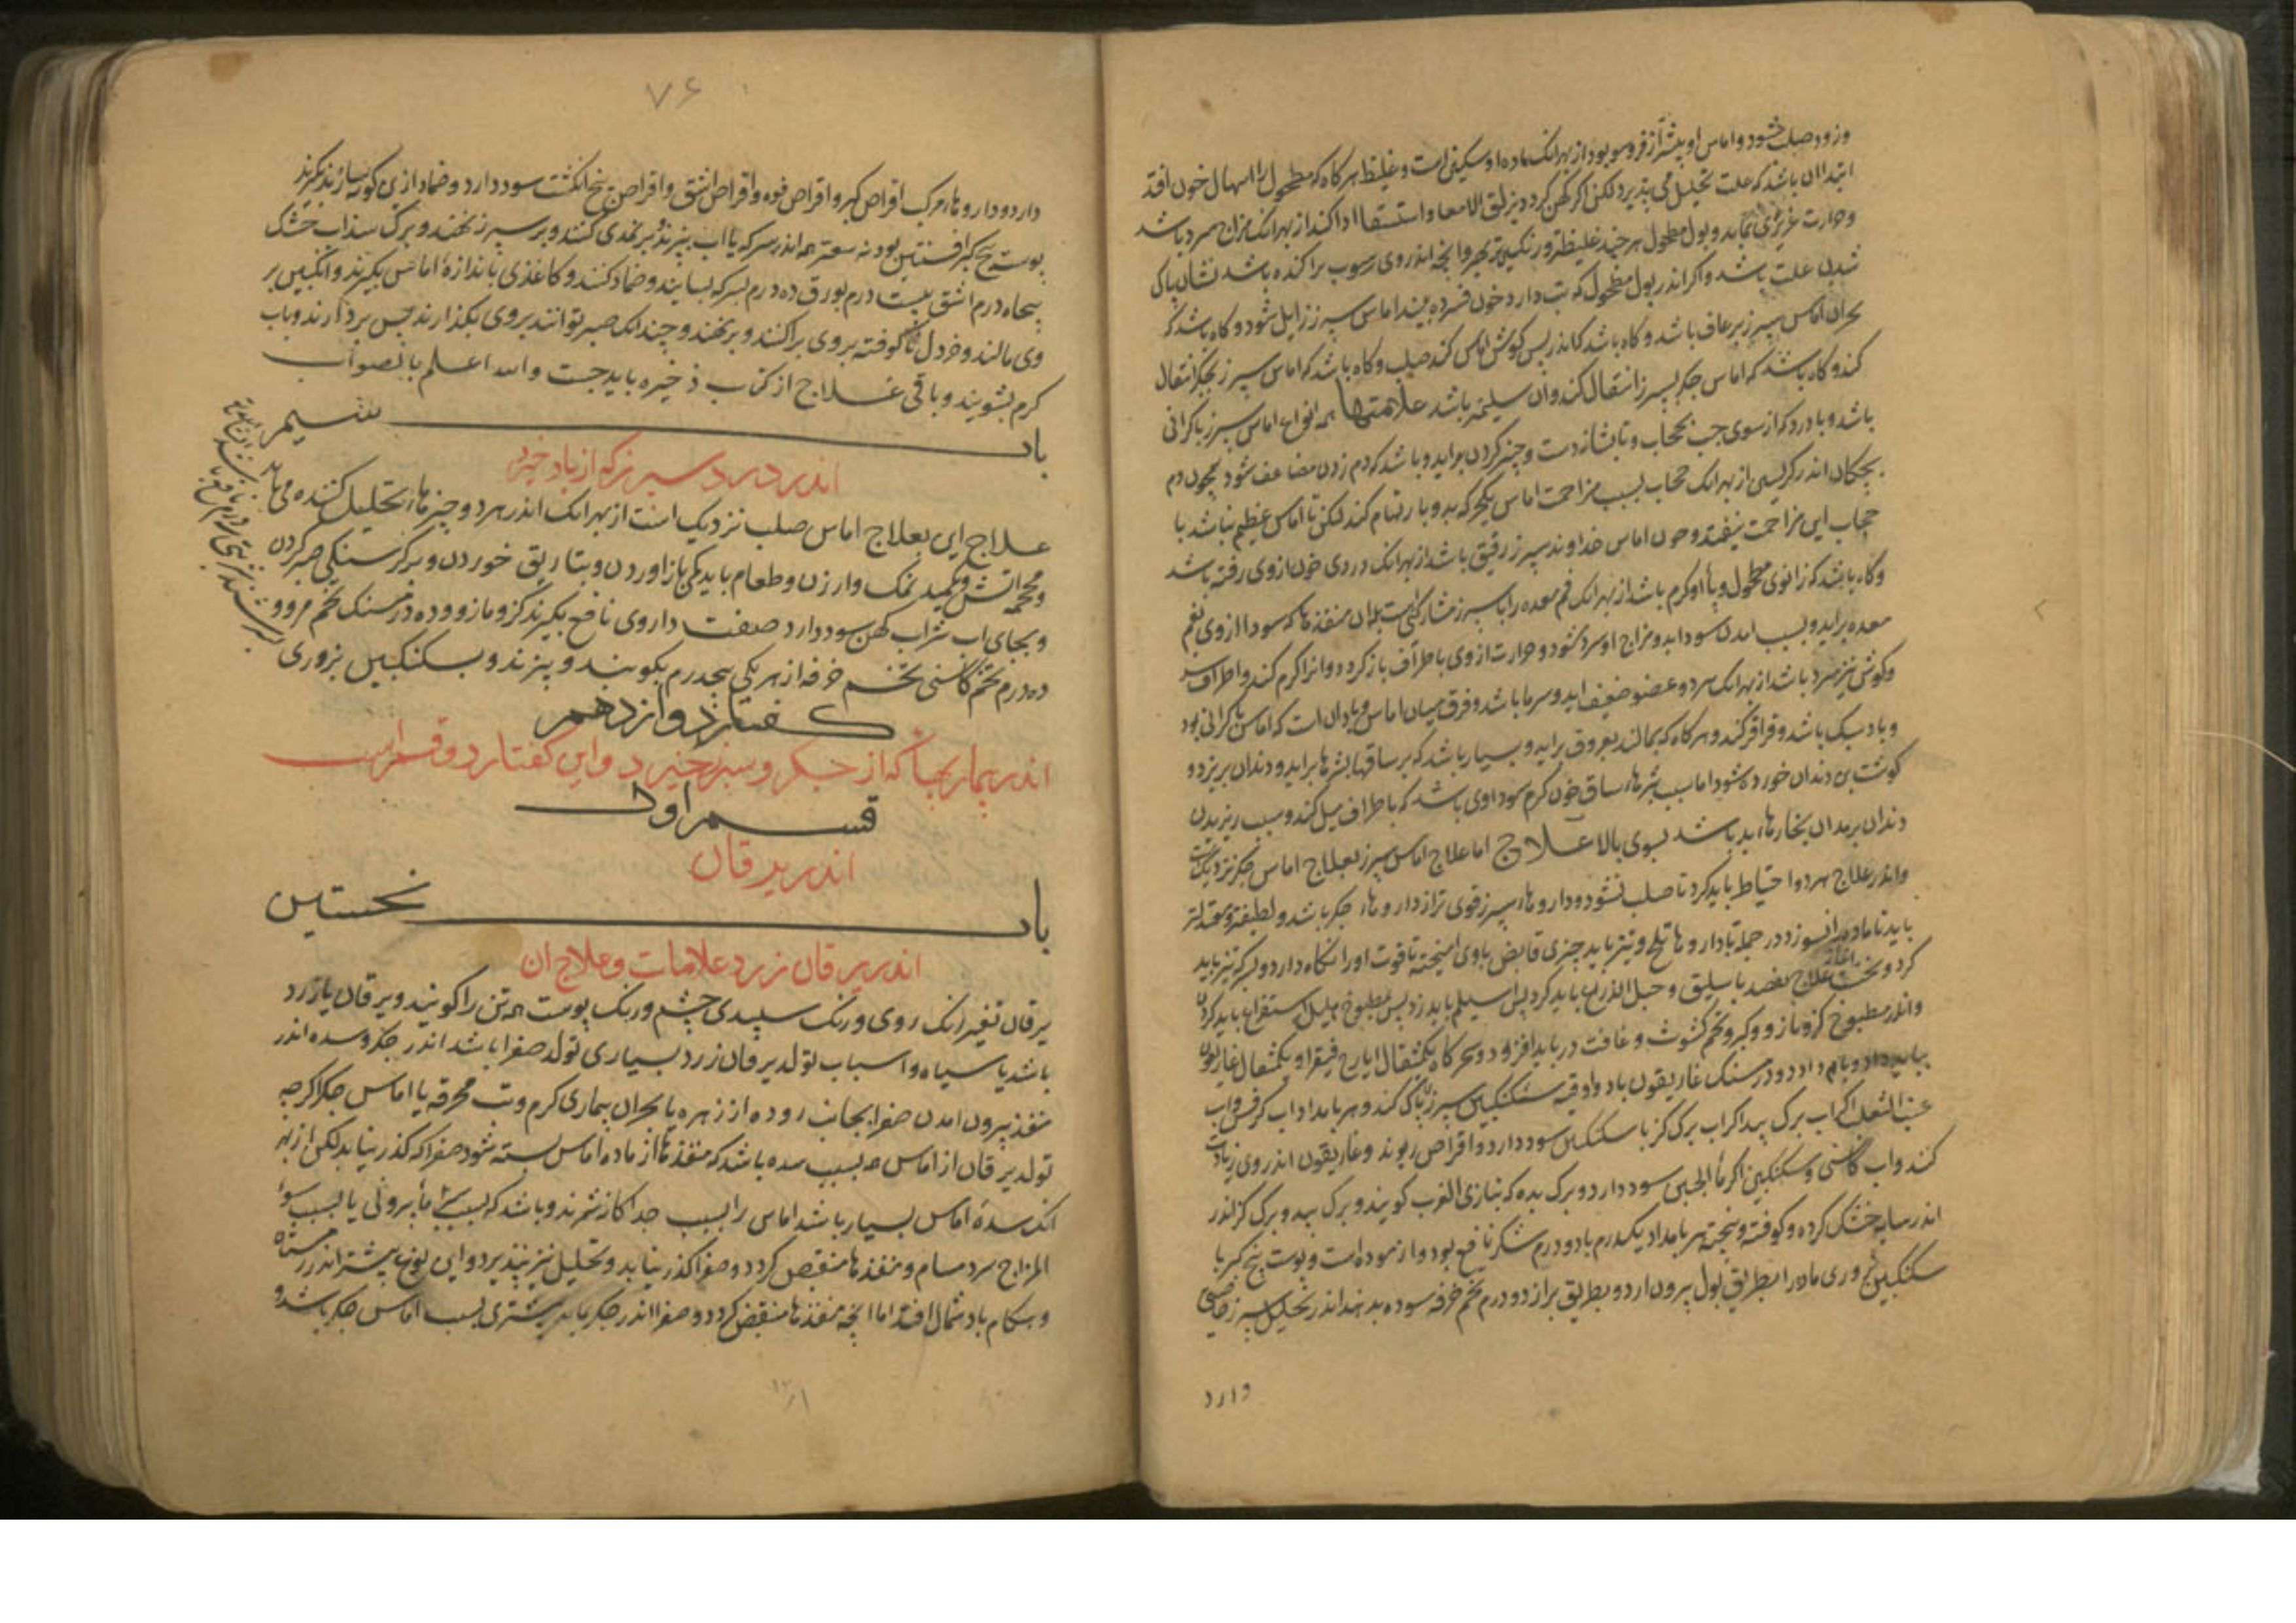 وزود صلب شود و اماس او بیشتر از فرو سو بود از بهر انک ماده او سکیفی است و غلیظ هر کاه که مطحول را اسهال خون افتد
ابتدا ان باشد که علت تحلیل می پذیرد لکن اکر کهن کردد بزلق الامعا و استسقا ادا کند از بهر انک مزاج سرد باشد
وحرارت غریزی بماید و بول مطحول هر چند غلیظتر ورنکین تر بهتر وانچه اندر وی رسوب براکنده باشد نشان پاکی
شدن علت باشد و اکر اندر بول مطحول که تب دارد خون فسرده بیند اماس سپرز زایل شود و کاه باشد که
بحران اماس سپرز برعاف باشد و کاه باشد کاندر پس کوش اماس کند صلب وکاه باشد که اماس سپرز بجکر انتقال
کند و کاه باشد که اماس جکر بسپرز انتقال کند وان سلیمتر باشد علامتها همه انواع اماس سپرز با کرانی
باشد و با درد که از سوی چپ بحجاب و تا بشانه دست و چنبر کردن براید و باشد که دم زدن مضاعف شود همچون دم
بچکان اندر کریستن از بهر انک حجاب بسبب مزاحمت اماس یکبحرکه بدو بار تمام کند لکن تا اماس عظیم نباشد با
حجاب این مزاحمت نیفتد وخون اماس خداوند سپرز رقیق باشد از بهر انک دردی خون از وی رفته باشد
وکاه باشد که زانوی مطحول وپا او کرم باشد از بهر انک فم معده را با سپرز مشارکتی است بدان منفذها که سودا از وی بفم
معده براید و بسبب امدن سودا بدو مزاج او سرد شود و حرارت از وی باطراف باز کردد و انرا کرم کند و اطراف سر
وکوش نیز سرد باشد از بهر انک سرد و عضو ضعیف اید و سرما باشد و فرق میان اماس و باد ان است که اماس با کرانی بود
و باد سبک باشد و قراقر کند و هر کاه که بمالند بعروق براید و بسیار باشد که بر ساقها بثرها براید و دندان بریزد و
کوشت بن دندان خورده شود اما سبب بثرهاء ساق خون کرم سوداوی باشد که باطراف میل کند و سبب ریزیدن
دندان بر بدان بخارهاء بد باشد بسوی بالا علاج اما علاج اماس سپرز بعلاج اماس جکر نزدیکست
واندر علاج هر دو احتیاط باید کرد تا صلب نشود و داروهاء سپرز قوی تر از داروهاء جکر باشد و لطیفتر و معتدلتر
باید تا ماده را نسوزد در جمله با داروها تلخ و تیز باید چیزی قابض باوی امیخته تا قوت او را نکاه دارد و سرکه تیز باید
کرد و نخست اغاز علاج بفصد باسلیق و حبل الذراع باید کرد پس اسیلم باید زد پس بمطبوخ هلیله استفراغ باید کردن
واندر مطبوخ کزمازو و کبر و تخم کشوث و غافت در باید افزود و سحرکاه یکمثقال ایارج فیقرا و یکمثقال غاریقون
بباید داد و بام داد دو درمسنک غاریقون با دو اوقیه سکنکبین سپرز پاک کند و هر بامداد اب کرفس و اب
عنب الثعلب اکر اب برک بید اکر اب برک کز با سکنکبین سود دارد و اقراص ریوند و غاریقون اندر وی زیادت
کنند و اب کاسنی و سکنکبین اکر ماء الجبن سود دارد و برک بده که بتازی الغرب کویند و برک بید و برک کز اندر
اندر سایه خشک کرده و کوفته و بیخته هر بامداد یکدرم با دو درم شکر نافع بود و ازموده است و پوست بیخ کبر با
سکنکبین بزوری ماده را بطریق بول بیرون ارد و بطریق براز دو درم تخم خرفه سوده بدهند اندر تحلیل سپرز خاصیتی
دارد
۷۶
دارد و داروهاء مرکب اقراص کبر و اقراص فوه و اقراص اشق و اقراص پنج انکشت سود دارد و ضماد ازین کونه سازند بکیرند
پوست بیخ کبر افسنتین پودنه سعتر همه اندر سرکه یا اب بپزند و بر نمدی کنند و بر سپرز نهند و برک سداب خشک
پنجاه درم اشق بیست درم بورق ده درم بسرکه بسایند و ضماد کنند و کاغذی باندازهٔ اماس بکیرند و انکبین بر
وی مالند و خردل ناکوفته بر وی براکنند و بر نهند و چندانک صبر توانند بر وی بکذارند پس بردارند و باب
کرم بشویند و باقی علاج از کتاب ذخیره باید جست والله اعلم بالصواب
باب سیم
اندر درد سپرز که از باد خیزد
علاج این بعلاج اماس صلب نزدیک است از بهر انک اندر هر دو چیزهاء تحلیل کننده می باید
و محجمه اتش و تکمید نمک و ارزن و طعام باید بکمی باز اوردن و بتفاریق خوردن و بر کرسنکی صبر کردن
و بجای اب شراب کهن سود دارد صفت داروی نافع بکیرند کزمازو ده درمسنک تخم مرو و
ده درم تخم کاسنی تخم خرفه از هر یکی پنجدرم بکوبند و بپزند و بسکنکبین بزوری
کفتار دوازدهم
اندر بیماریها که از جکر و سپرز خیزد و این کفتار دو قسم است
قسم اول
اندر یرقان
باب نخستین
اندر یرقان زرد علامات و علاج ان
یرقان تغیر رنک روی و رنک سپیدی چشم و رنک پوست همه تن را کویند و یرقان یا زرد
باشد یا سیاه و اسباب تولد یرقان زرد بسیاری تولد صفرا باشد اندر جکر و سده اندر
منفذ بیرون امدن صفرا بجانب روده از زهره یا بحران بیماری کرم و تب محرقه یا اماس جکر اکرچه
تولد یرقان از اماس هم بسبب سده باشد که منفذها از ماده اماس بسته شود صفرا که کذر نیابد لکن از بهر
انک سدهٔ اماس بسیار باشد اماس را بسبب جداکانه شمرند و باشد که بسبب سرما بیرونی یا بسبب سوء
المزاج سرد مسام و منفذها منقبض کردد و صفرا کذر نیابد و تحلیل نیز نپذیرد و این نوع بیشتر اندر زمستان
و هنکام باد شمال افتد اما انچه منفذها منقبض کردد و صفرا اندر جکر بماند بیشتری بسبب اماس جکر باشد و